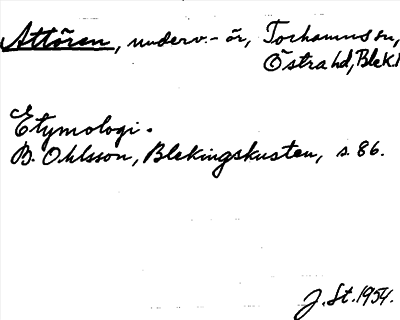 Attören, underv.- ör, Torhamns sn,
Östra hd, Blek.
Etymologi.
B. Ohlsson, Blekingskusten, s. 86.
J. St. 1954.